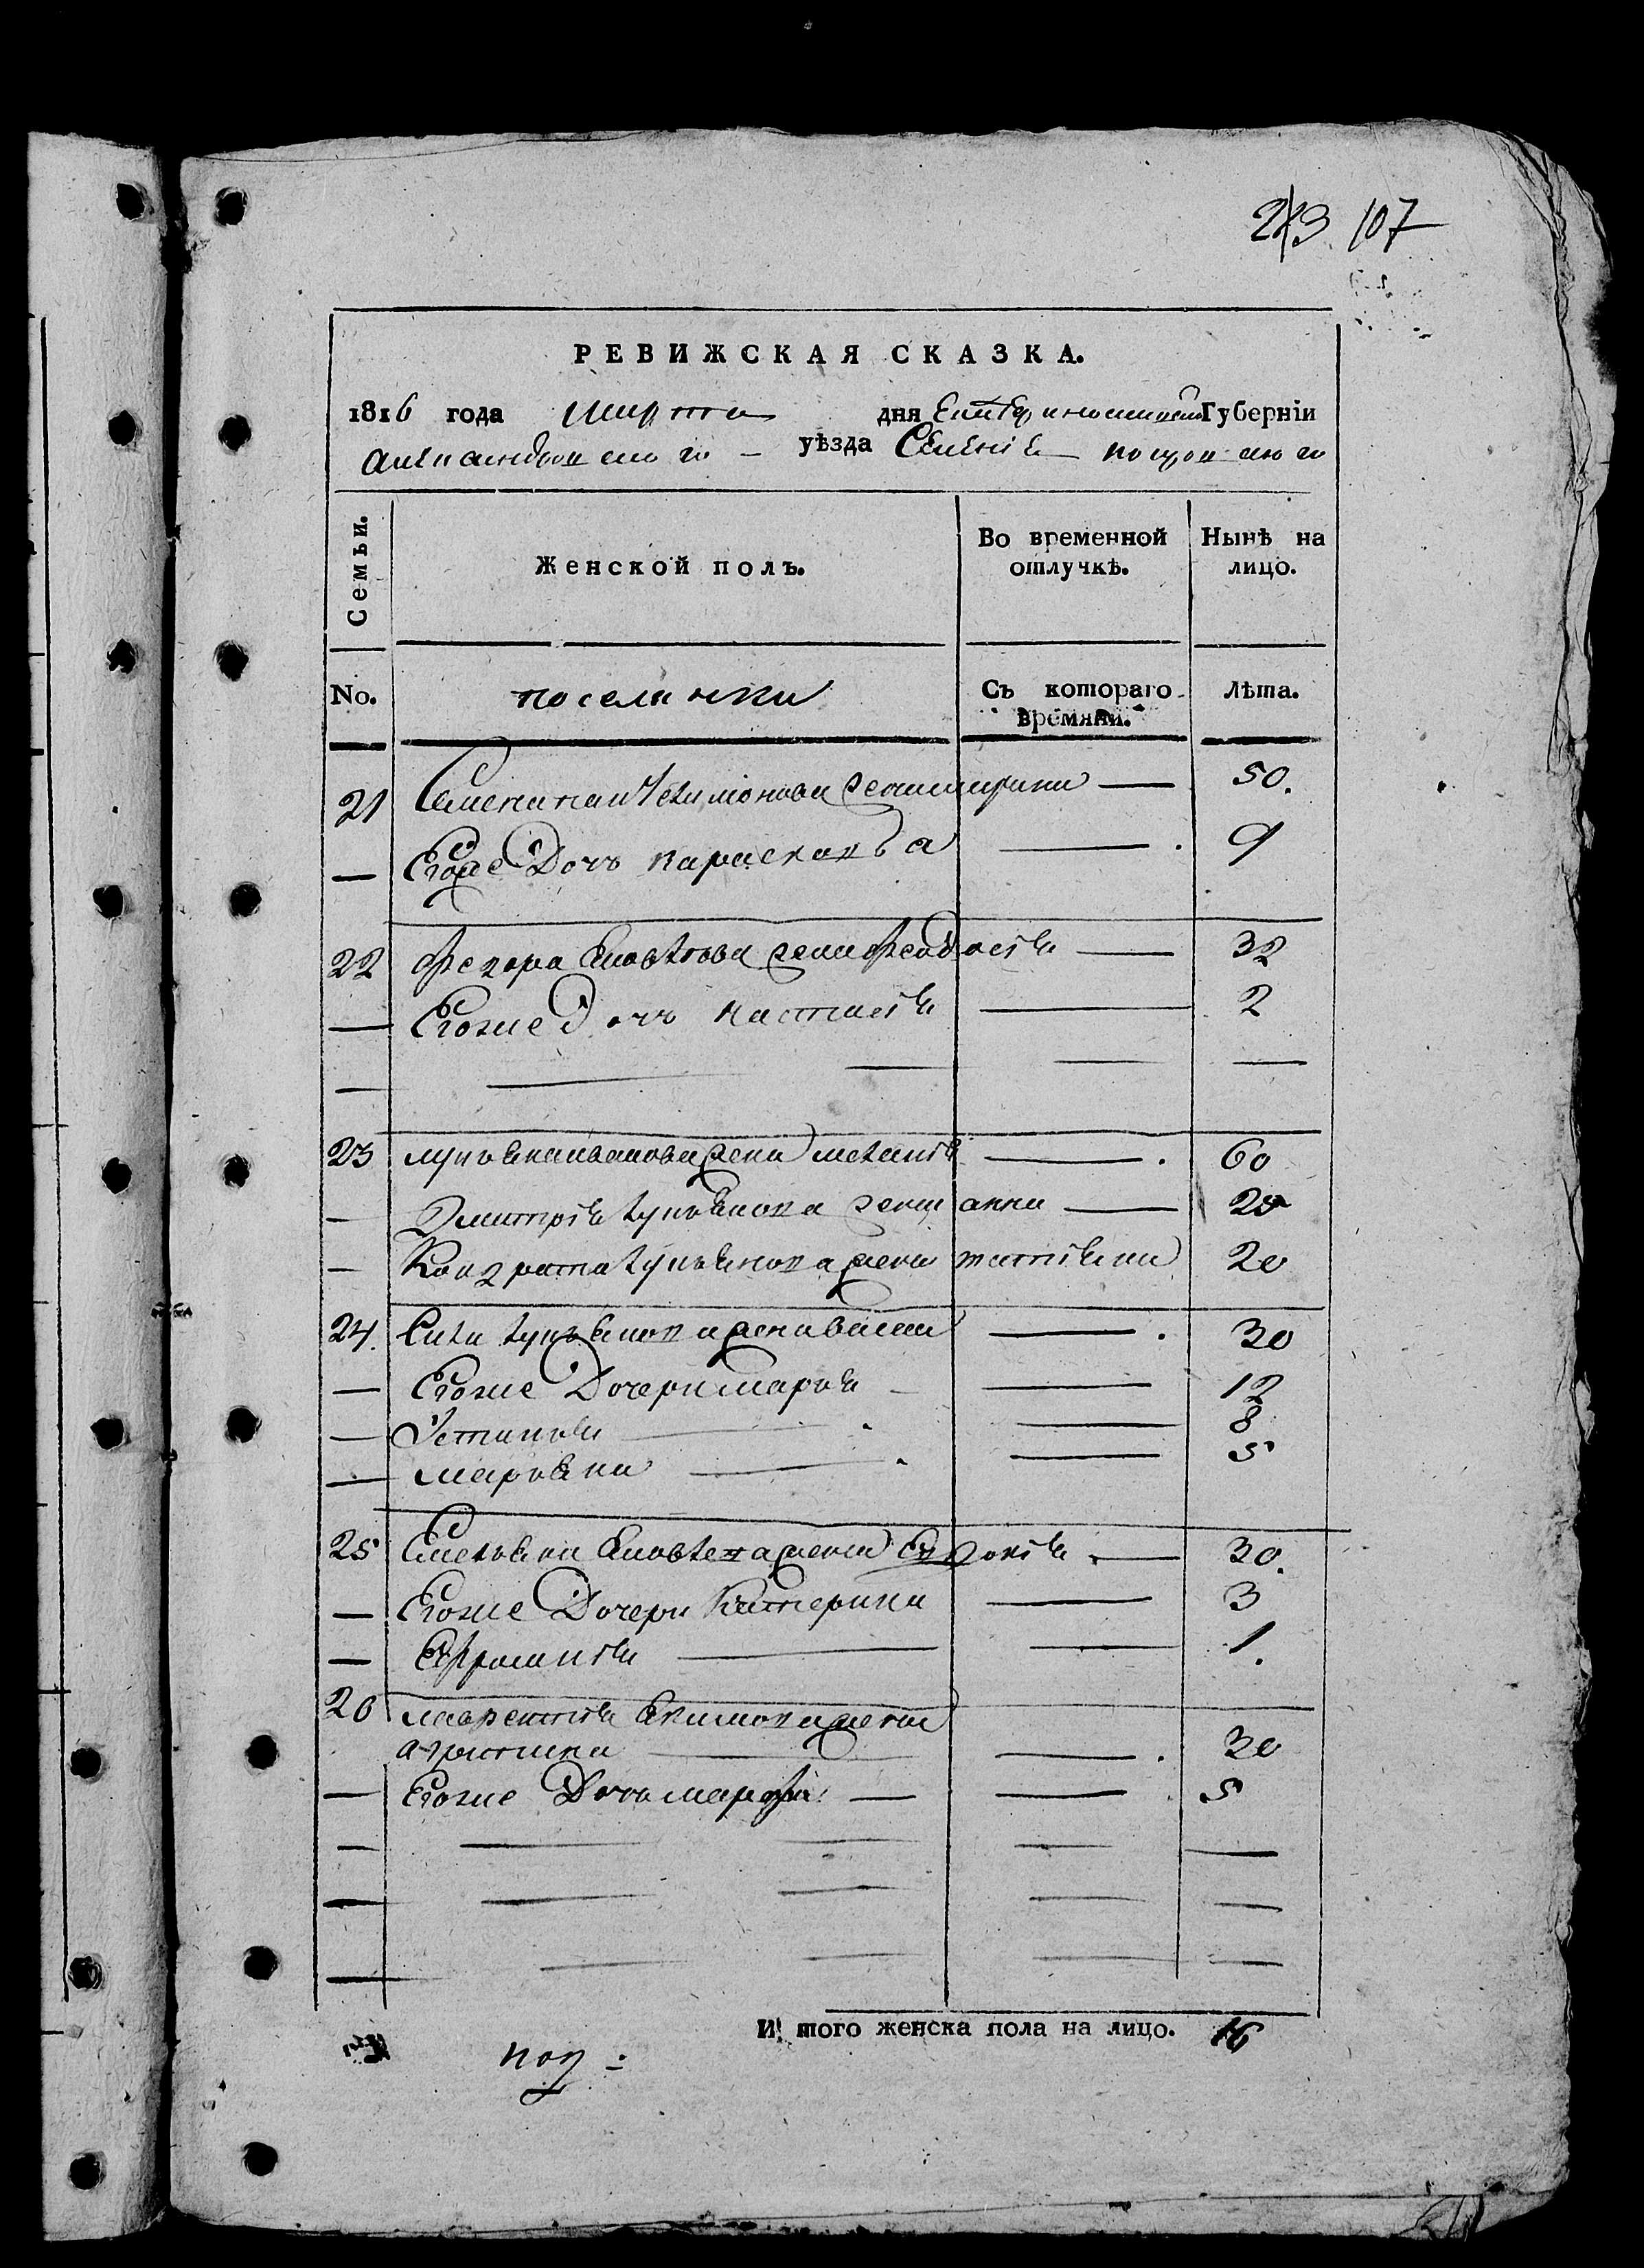 213 107
РЕВИЖСКАЯ СКАЗКА.
1816 года марта дня Екатеринославской Губерніи
александровского — уѣзда Селенія покровского
Семьи.
Женской полъ.
Во временной отлучкѣ.
Нынѣ на лицо.
No.
поселянки
Съ котораго времяни.
Лѣта.
21 Семена жена ирина — 50.
— Егоже Дочь парасковья — 9
22 Федора жена федосія — 32
— Егоже Дочь настасія — 2
23 лукьяна иванова жена меланія — 60
— Дмитрія лукьянова жена анна — 28
— Кондрата лукьянова жена татіяна 20
24. Силы лукьянова жена васса — 30
— Егоже Дочери марья — 12
— Устинья — 8
— марьяна — 5
25 Емельяна жена Евдокія — 30.
— Егоже Дочери Катерина — 3
— Ефросинія — 1.
26 лаврентія Якимова жена
христина — 30
— Егоже Дочь марфа — 5
И того женска пола на лицо. 16